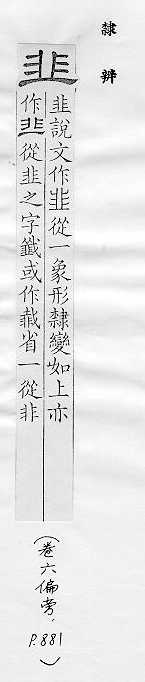 隸辨
韭
韭說文作韭從一象形隸變如上亦
作韭從韭之字䥫或作䪠省一從非
(卷六偏旁, P.881)